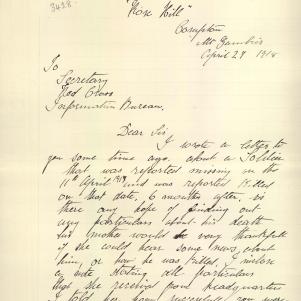 3428.
"Rose Hill"
Compton
Mt Gambier
April 29 1918
To
Secretary
Red Cross
Information Bureau,
Dear Sir
I wrote a letter to
you some time ago, about a Soldier
that was reported missing in the
11th April 1917 and was reported Killed
on that date, 6 months after. is
there any hope of finding out
any particulars about his death
his Mother would be very thankfull
if she could hear some news, about
him, or how he was Killed, I inclose
a note stating all particulars
that she received from headquarters
I told her how successfull you were